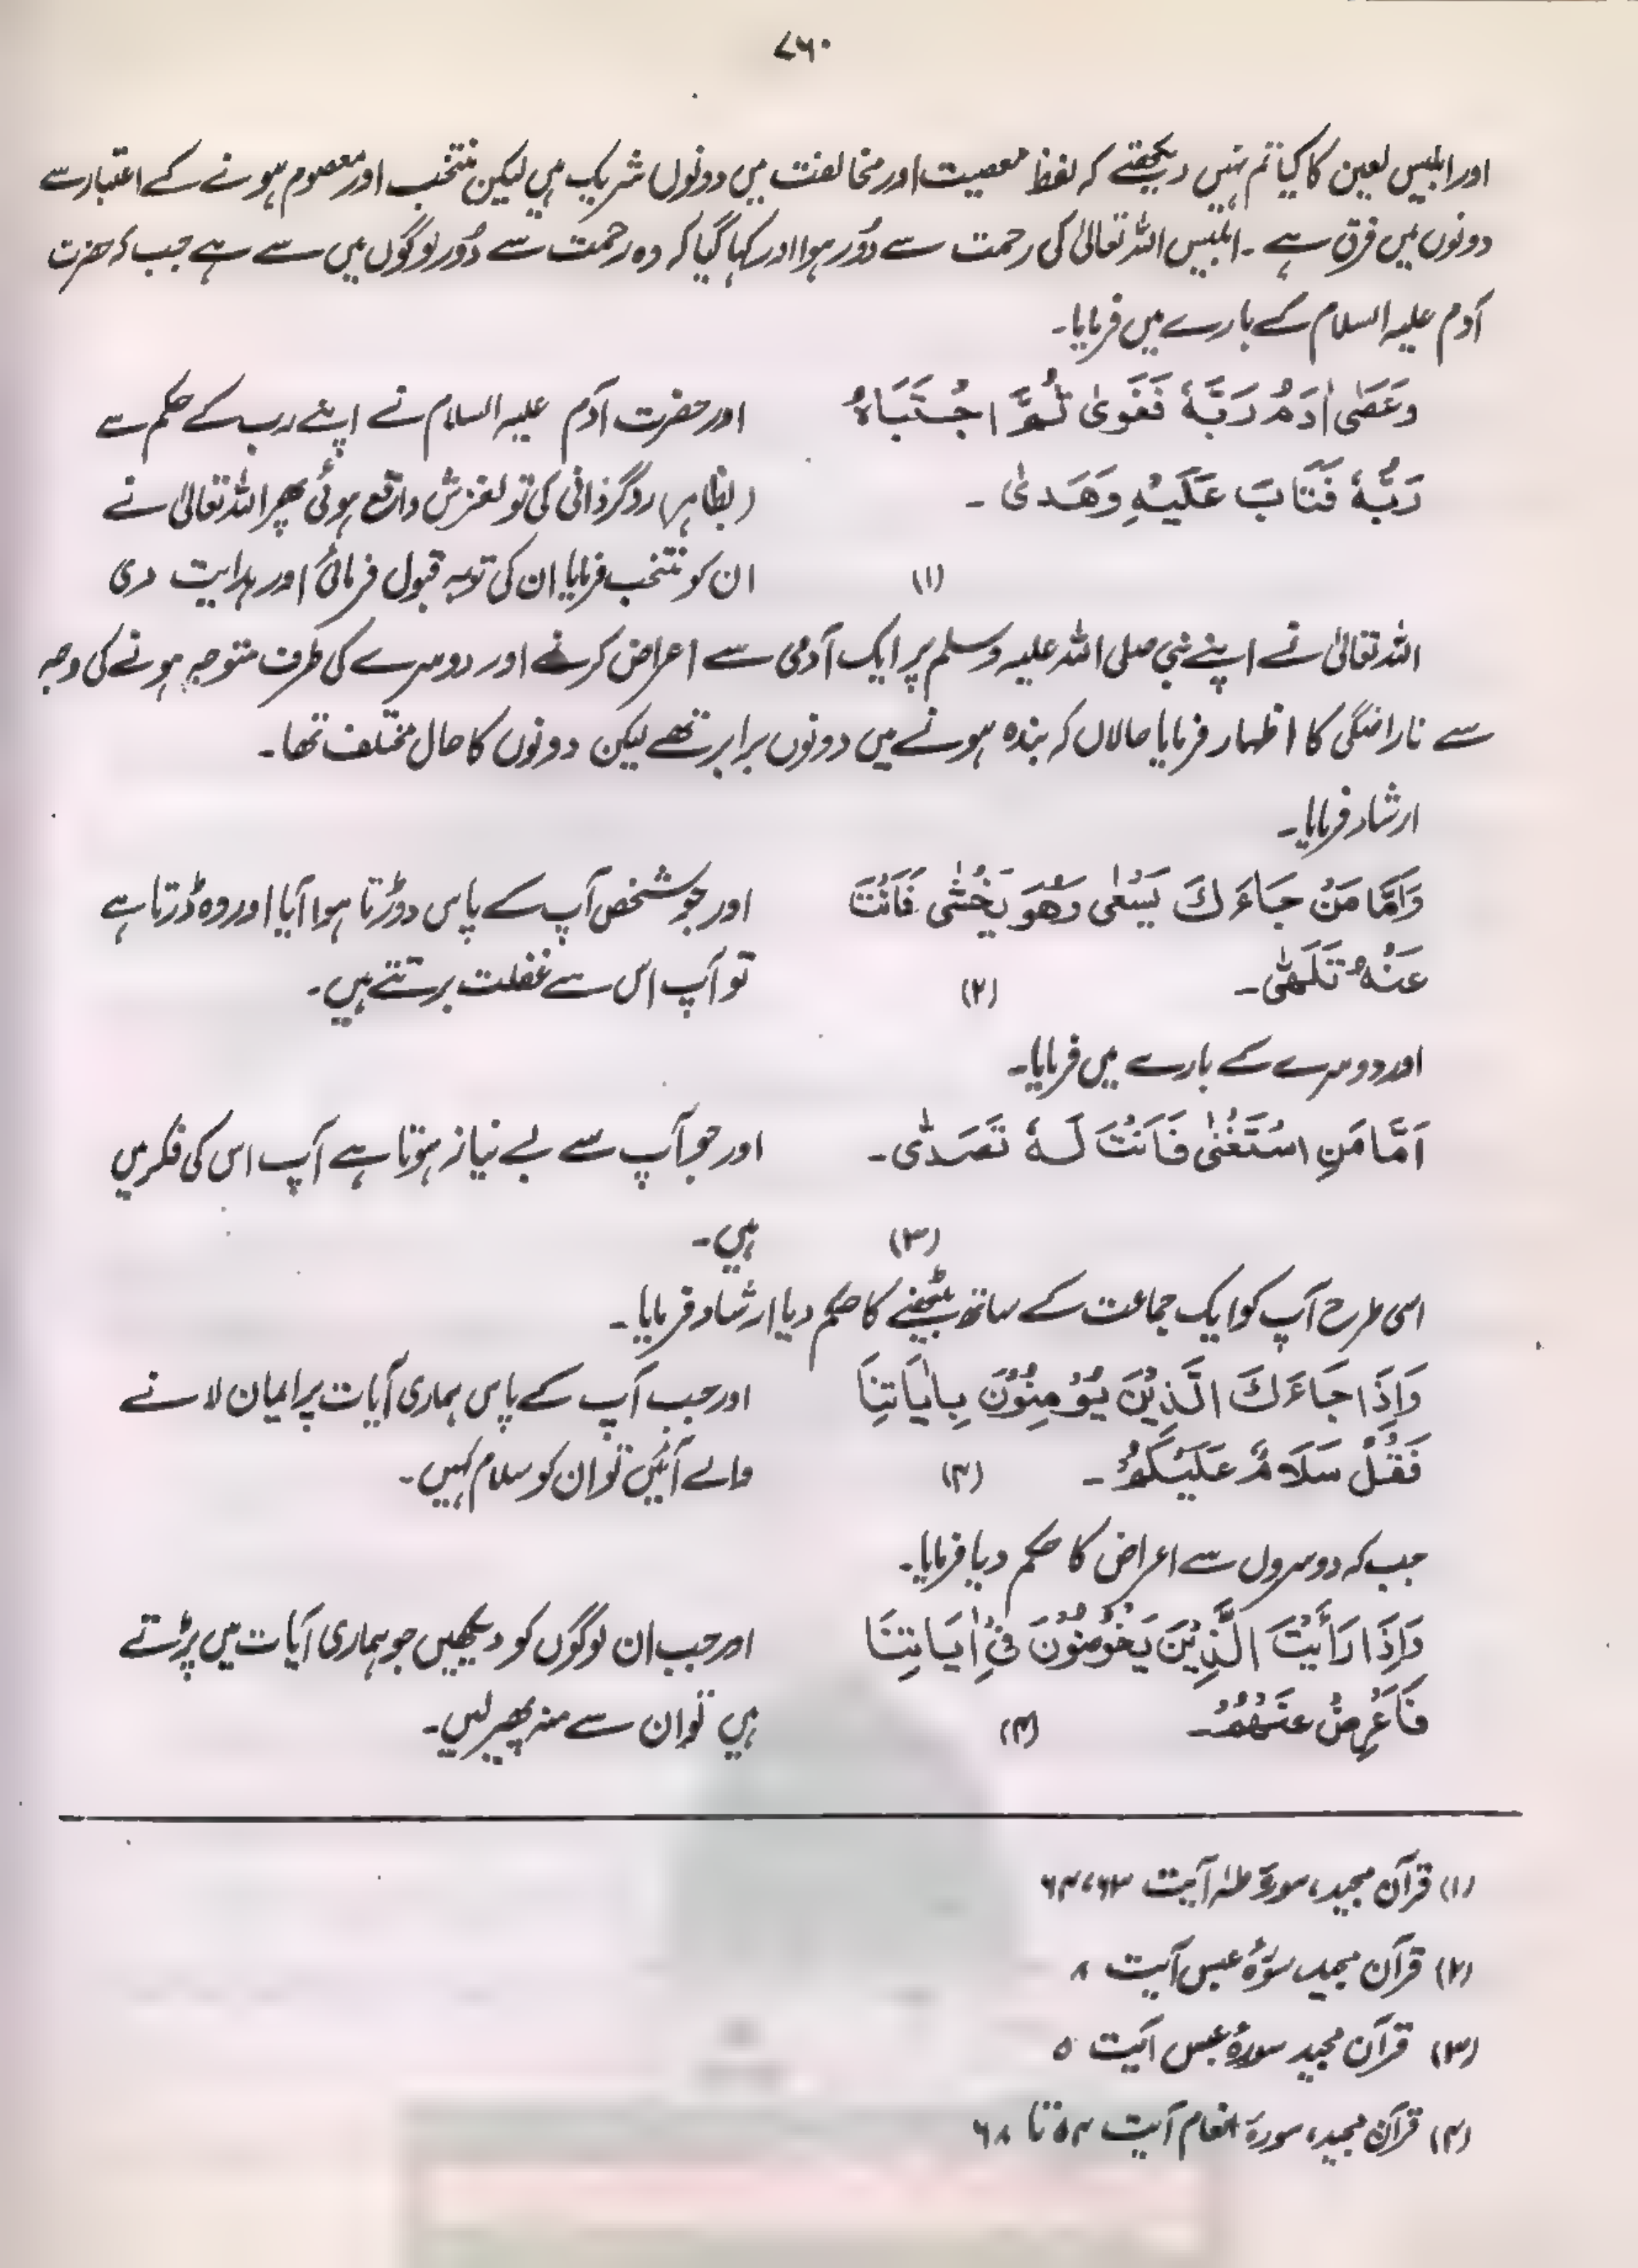 ۷۶۰
اور ابلیس لعین کا کیا تم نہیں دیکھتے کہ لفظ معصیت اور مخالفت میں دونوں شریک ہیں لیکن منتخب اور معصوم ہونے کے اعتبار سے
دونوں میں فرق ہے ۔ ابلیس اللہ تعالیٰ کی رحمت سے دُور ہوا اور کہا گیا کہ وہ رحمت سے دُور لوگوں میں سے ہے جب کہ حضرت
آدم علیہ السلام کے بارے میں فرمایا۔
وَعَصٰی اٰدَمُ رَبَّہٗ فَغَوٰی ثُمَّ اجْتَبَاہُ
رَبُّہٗ فَتَابَ عَلَیْہِ وَھَدٰی ۔
(۱)
اور حضرت آدم علیہ السلام نے اپنے رب کے حکم سے
(بظاہر) روگردانی کی تو لغزش واقع ہوئی پھر اللہ تعالیٰ نے
ان کو منتخب فرمایا ان کی توبہ قبول فرمائی اور ہدایت دی
اللہ تعالیٰ نے اپنے نبی صلی اللہ علیہ وسلم پر ایک آدمی سے اعراض کرنے اور دوسرے کی طرف متوجہ ہونے کی وجہ
سے ناراضگی کا اظہار فرمایا حالاں کہ بندہ ہونے میں دونوں برابر تھے لیکن دونوں کا حال مختلف تھا۔
ارشاد فرمایا۔
وَاَمَّا مَنْ جَاءَکَ یَسْعٰی وَھُوَ یَخْشٰی فَاَنْتَ
عَنْہُ تَلَھّٰی۔ (۲)
اور جو شخص آپ کے پاس دوڑتا ہوا آیا اور وہ ڈرتا ہے
تو آپ اس سے غفلت برتتے ہیں۔
اور دوسرے کے بارے میں فرمایا۔
اَمَّا مَنِ اسْتَغْنٰی فَاَنْتَ لَہٗ تَصَدّٰی۔
(۳)
اور جو آپ سے بے نیاز ہوتا ہے آپ اس کی فکر میں
ہیں۔
اسی طرح آپ کو ایک جماعت کے ساتھ بیٹھنے کا حکم دیا ارشاد فرمایا۔
وَاِذَا جَاءَکَ الَّذِیْنَ یُؤْمِنُوْنَ بِاٰیَاتِنَا
فَقُلْ سَلَامٌ عَلَیْکُمْ ۔ (۴)
اور جب آپ کے پاس ہماری آیات پر ایمان لانے
والے آئیں تو ان کو سلام کہیں۔
جب کہ دوسروں سے اعراض کا حکم دیا فرمایا۔
وَاِذَا رَأَیْتَ الَّذِیْنَ یَخُوْضُوْنَ فِیْ اٰیَاتِنَا
فَاَعْرِضْ عَنْھُمْ۔ (۴)
اور جب ان لوگوں کو دیکھیں جو ہماری آیات میں پڑتے
ہیں تو ان سے منہ پھیر لیں۔
(۱) قرآن مجید، سورۃ طہٰ آیت ۶۳، ۶۴
(۲) قرآن مجید سورۃ عبس آیت ۸
(۳) قرآن مجید سورۃ عبس آیت ۵
(۴) قرآن مجید، سورۃ انعام آیت ۵۴ تا ۶۸